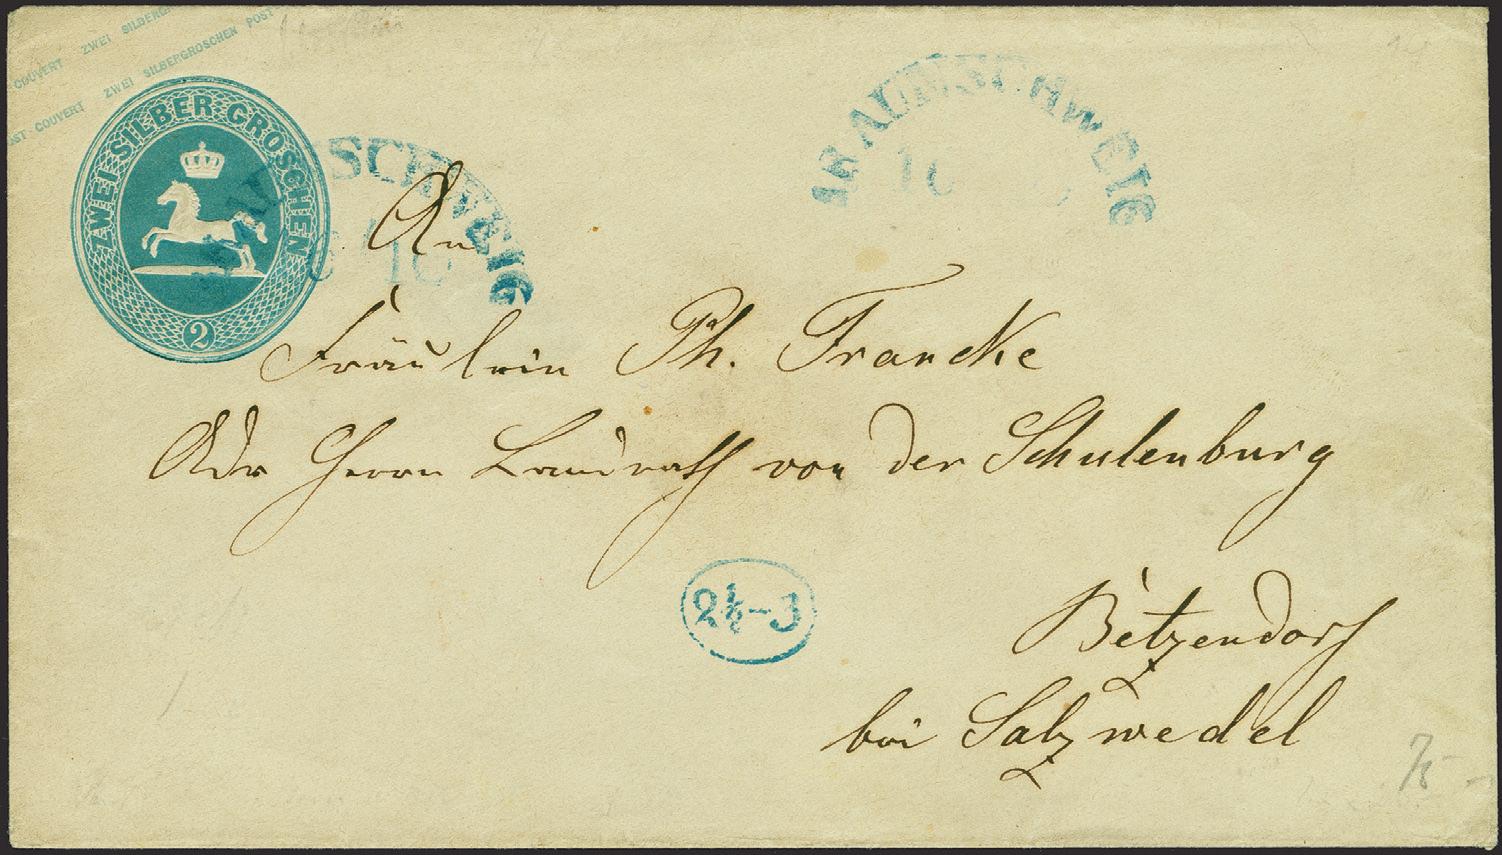 COUVERT ZWEI SILBERG
ST COUVERT ZWEI SILBERGROSCHEN POST
ZWEI SILBER GROSCHEN
2
BRAUNSCHWEIG
SCHWEIG
10
An
Fräulein Ph. Francke
Adr Herrn Landrath von der Schulenburg
2½-3
Betzendorf
bei Salzwedel
75-